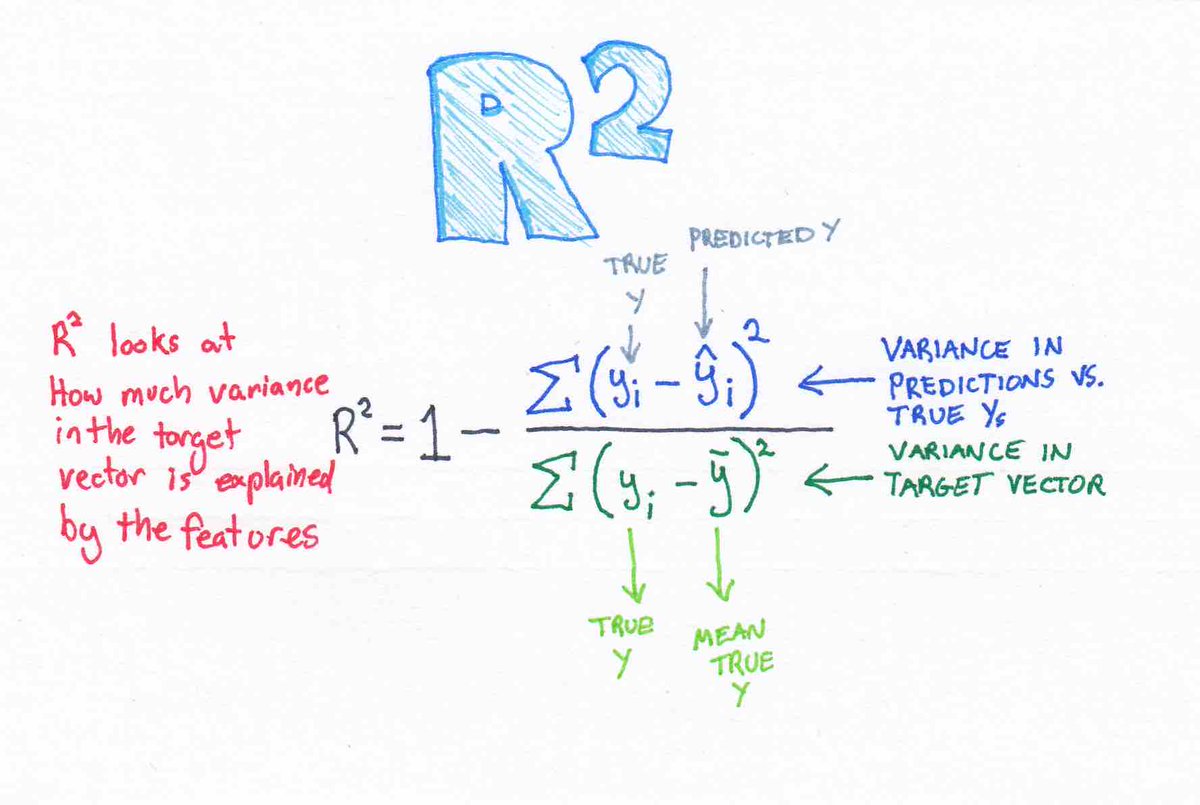 R²
PREDICTED Y
TRUE
Y
R² looks at
How much variance
in the target
vector is explained
by the features
R² = 1 - Σ(yᵢ - ŷᵢ)² / Σ(yᵢ - ȳ)²
VARIANCE IN
PREDICTIONS VS.
TRUE Ys
VARIANCE IN
TARGET VECTOR
TRUE
Y
MEAN
TRUE
Y